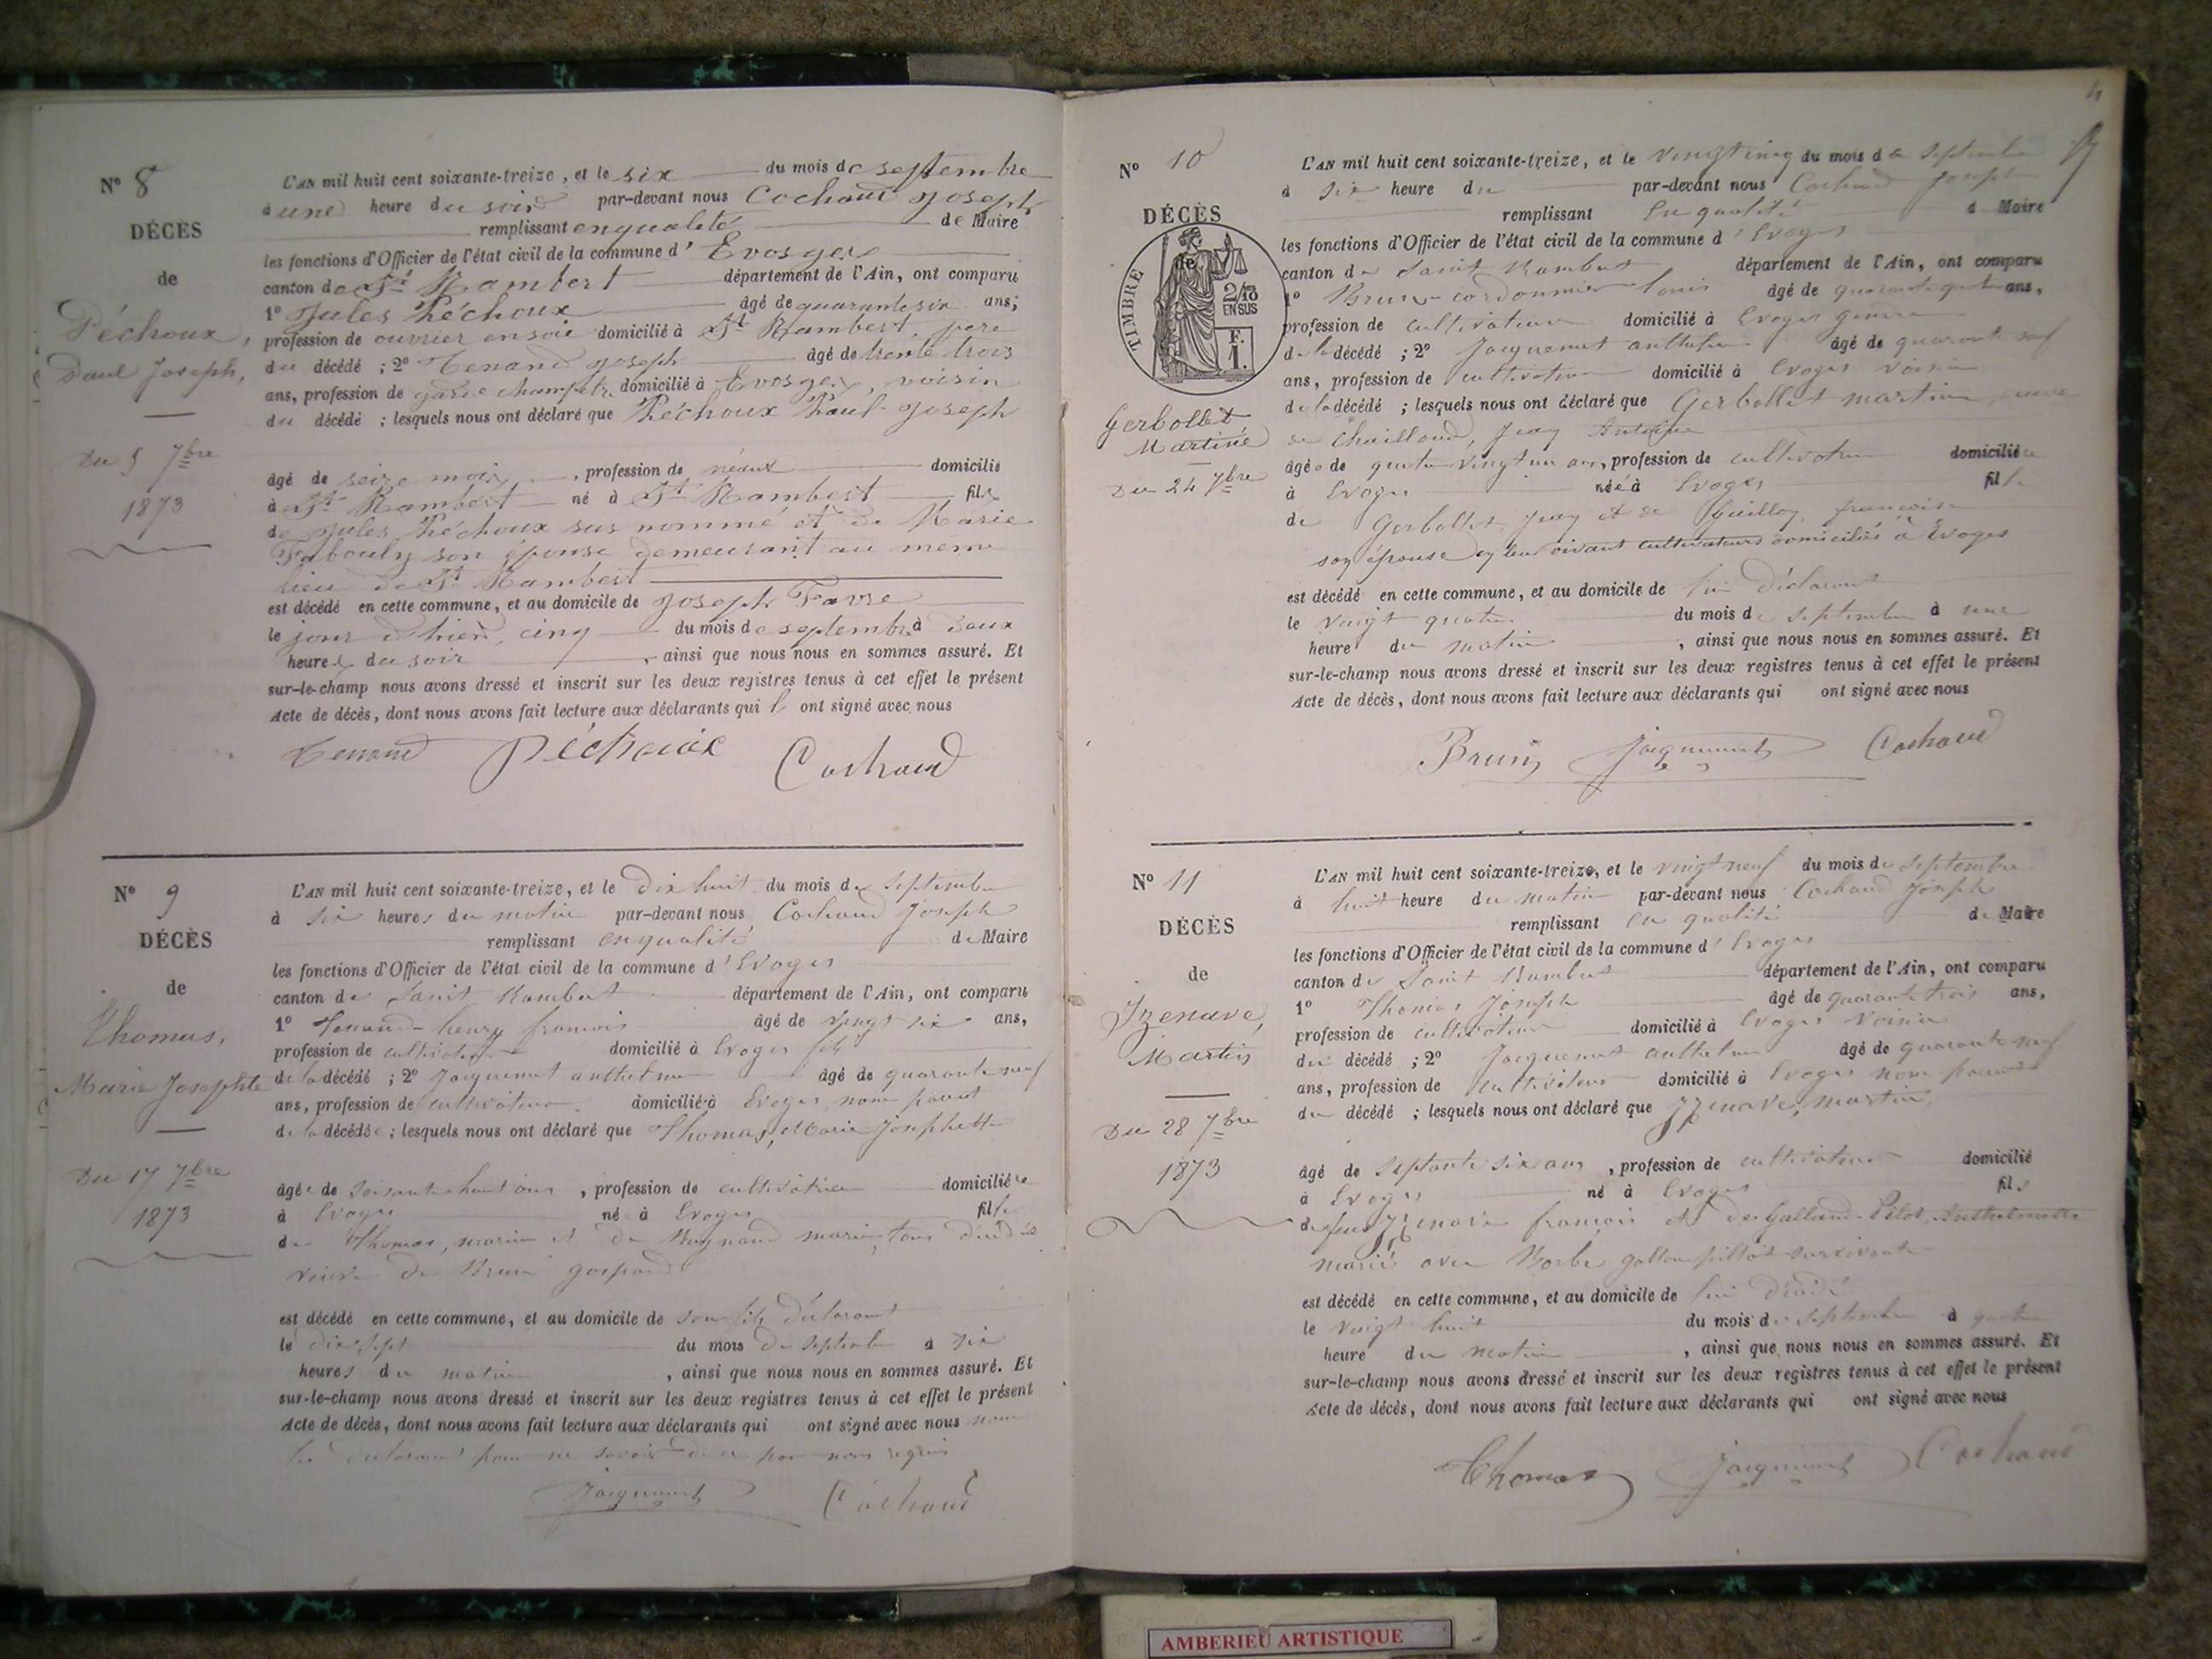 N° 8
DÉCÈS
de
Péchoux,
Paul Joseph,
Du 5 7bre
1873
L'AN mil huit cent soixante-treize, et le six du mois de septembre
à une heure du soir par-devant nous Cochaud Joseph
remplissant en qualité de Maire
les fonctions d'Officier de l'état civil de la commune d'Evosges
canton de St Rambert département de l'Ain, ont comparu
1° Jules Péchoux âgé de quarante six ans;
profession de ouvrier en soie domicilié à St Rambert, père
du décédé ; 2° Tenand Joseph âgé de trente trois
ans, profession de garde champêtre domicilié à Evosges, voisin
du décédé ; lesquels nous ont déclaré que Péchoux Paul Joseph
âgé de seize mois, profession de néant domicilié
à St Rambert né à St Rambert fils
de Jules Péchoux sus nommé et de Marie
son épouse demeurant au même
lieu de St Rambert
est décédé en cette commune, et au domicile de Joseph Favre
le jour d'hier, cinq du mois de septembre à deux
heures du soir, ainsi que nous nous en sommes assuré. Et
sur-le-champ nous avons dressé et inscrit sur les deux registres tenus à cet effet le présent
Acte de décès, dont nous avons fait lecture aux déclarants qui ont signé avec nous
Tenand Péchoux Cochaud
N° 9
DÉCÈS
de
Thomas,
Marie Josephte
Du 17 7bre
1873
L'AN mil huit cent soixante-treize, et le dix huit du mois de septembre
à six heures du matin par-devant nous Cochaud Joseph
remplissant en qualité de Maire
les fonctions d'Officier de l'état civil de la commune d'Evoges
canton de Saint Rambert département de l'Ain, ont comparu
1° henry françois âgé de vingt six ans,
profession de cultivateur domicilié à Evoges fils
de la décédé ; 2° Jacquemet anthelme âgé de quarante neuf
ans, profession de cultivateur domicilié à Evoges non parent
de la décédée ; lesquels nous ont déclaré que Thomas, Marie Josephette
âgée de soisante huit ans, profession de cultivatrice domiciliée
à Evoges né à Evoges fille
de Thomas, marin et de marie, tous décédés
veuve de Brun gaspard
est décédé en cette commune, et au domicile de son fils déclarant
le dix sept du mois de septembre à six
heures du matin, ainsi que nous nous en sommes assuré. Et
sur-le-champ nous avons dressé et inscrit sur les deux registres tenus à cet effet le présent
Acte de décès, dont nous avons fait lecture aux déclarants qui ont signé avec nous non
le déclarant pour ne savoir de ce par nous requis
Jacquemet Cochaud
4
N° 10
DÉCÈS
de
TIMBRE
2/10
EN SUS
F.
1.
Gerbollet
Martine
Du 24 7bre
L'AN mil huit cent soixante-treize, et le vingt cinq du mois de septembre
à six heure du par-devant nous Cochaud Joseph
remplissant en qualité de Maire
les fonctions d'Officier de l'état civil de la commune d'Evoges
canton de Saint Rambert département de l'Ain, ont comparu
1° Brun-cordonnier louis âgé de ans,
profession de cultivateur domicilié à Evoges gendre
de la décédé ; 2° Jacquemet anthelme âgé de quarante neuf
ans, profession de cultivateur domicilié à Evoges voisin
de la décédé ; lesquels nous ont déclaré que Gerbollet martine veuve
de Chailloud, Jean Antoine
âgée de quatre vingt un ans, profession de cultivatrice domiciliée
à Evoges née à Evoges fille
de Gerbollet Jean et de Guilloz françoise
son épouse en leur vivant cultivateurs domiciliés à Evoges
est décédé en cette commune, et au domicile de lui déclarant
le vingt quatre du mois de septembre à une
heure du matin, ainsi que nous nous en sommes assuré. Et
sur-le-champ nous avons dressé et inscrit sur les deux registres tenus à cet effet le présent
Acte de décès, dont nous avons fait lecture aux déclarants qui ont signé avec nous
Brun Jacquemet Cochaud
N° 11
DÉCÈS
de
Izenave,
Martin
Du 28 7bre
1873
L'AN mil huit cent soixante-treize, et le vingt neuf du mois de septembre
à huit heure du matin par-devant nous Cochaud Joseph
remplissant en qualité de Maire
les fonctions d'Officier de l'état civil de la commune d'Evoges
canton de Saint Rambert département de l'Ain, ont comparu
1° Thomas Joseph âgé de quarante trois ans,
profession de cultivateur domicilié à Evoges voisin
du décédé ; 2° Jacquemet anthelme âgé de quarante neuf
ans, profession de cultivateur domicilié à Evoges non parent
du décédé ; lesquels nous ont déclaré que Izenave, martin,
âgé de septante six ans, profession de cultivateur domicilié
à Evoges né à Evoges fils
de feu Izenave françois et de Galland-Pilot,
marié avec Barbe survivante
est décédé en cette commune, et au domicile de lui décédé
le vingt huit du mois de septembre à quatre
heure du matin, ainsi que nous nous en sommes assuré. Et
sur-le-champ nous avons dressé et inscrit sur les deux registres tenus à cet effet le présent
Acte de décès, dont nous avons fait lecture aux déclarants qui ont signé avec nous
Thomas Jacquemet Cochaud
AMBERIEU ARTISTIQUE